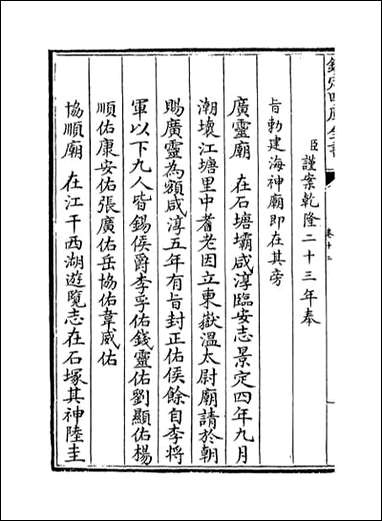 欽定四庫全書
卷廿三
臣謹案乾隆二十三年奉
旨勅建海神廟即在其旁
廣靈廟 在石塘壩咸淳臨安志景定四年九月
潮壞江塘里中耆老因立東嶽溫太尉廟請於朝
賜廣靈為額咸淳五年有旨封正佑侯餘自李將
軍以下九人皆錫侯爵李孚佑錢靈佑劉顯佑楊
順佑康安佑張廣佑岳協佑韋威佑
協順廟 在江干西湖遊覽志在石塚其神陸圭